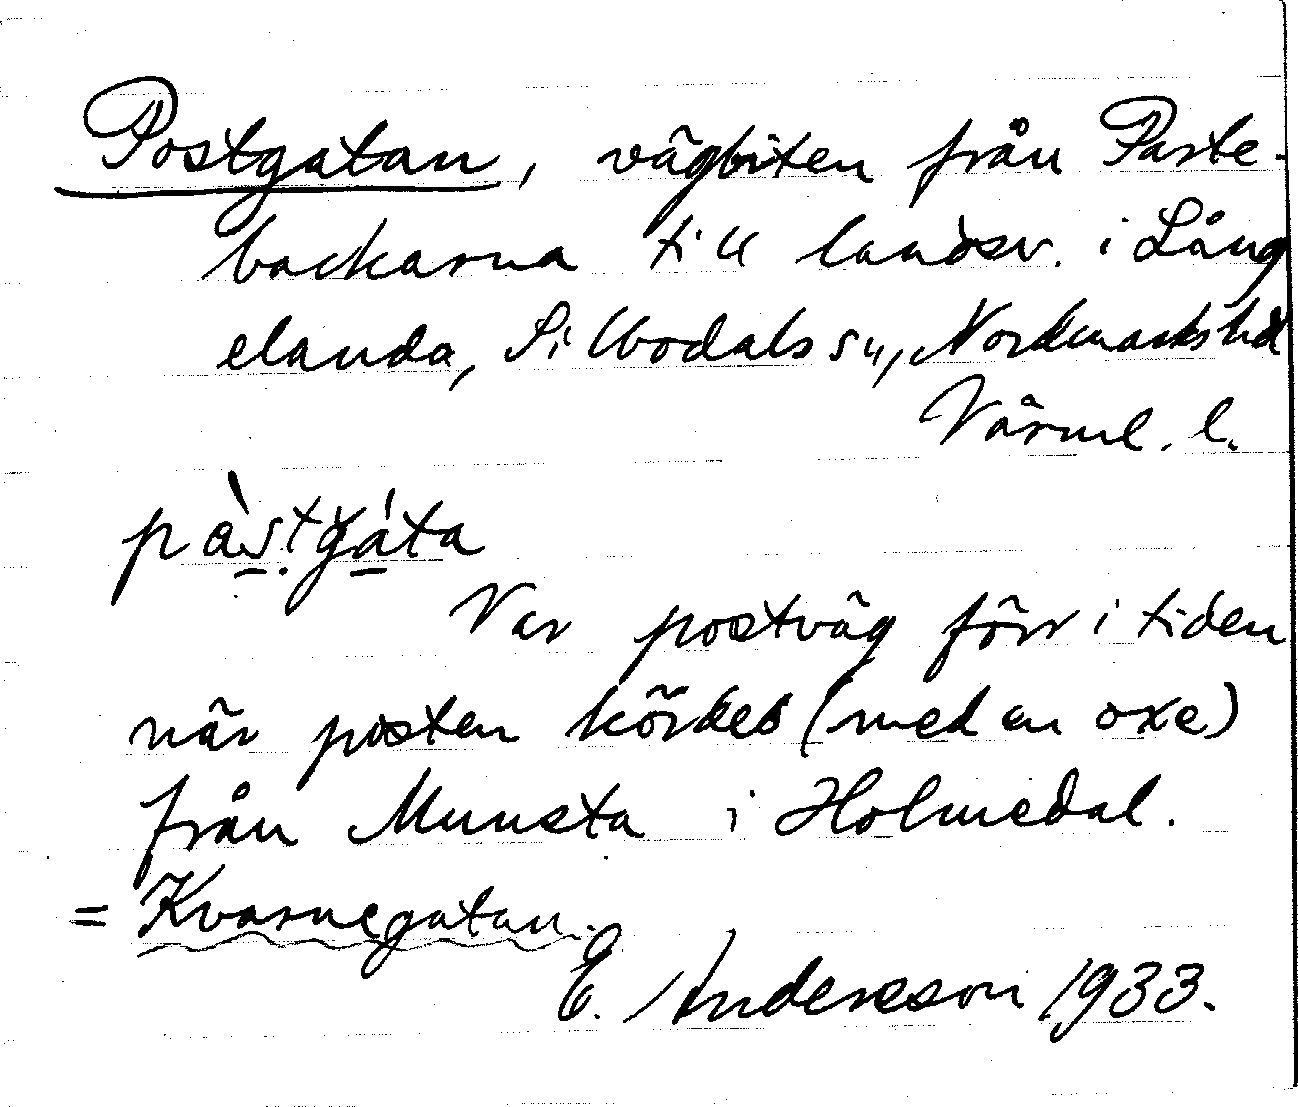 Postgatan, vägbiten från Parte-
backarna till landsv. i Lång
elanda, Sillbodals sn, Nordmarks hd
Värml. l.
pàstgáta
Var postväg förr i tiden
när posten kördes (med en oxe)
från Munsta i Holmedal.
= Kvarnegatan.
E. Andersson 1933.